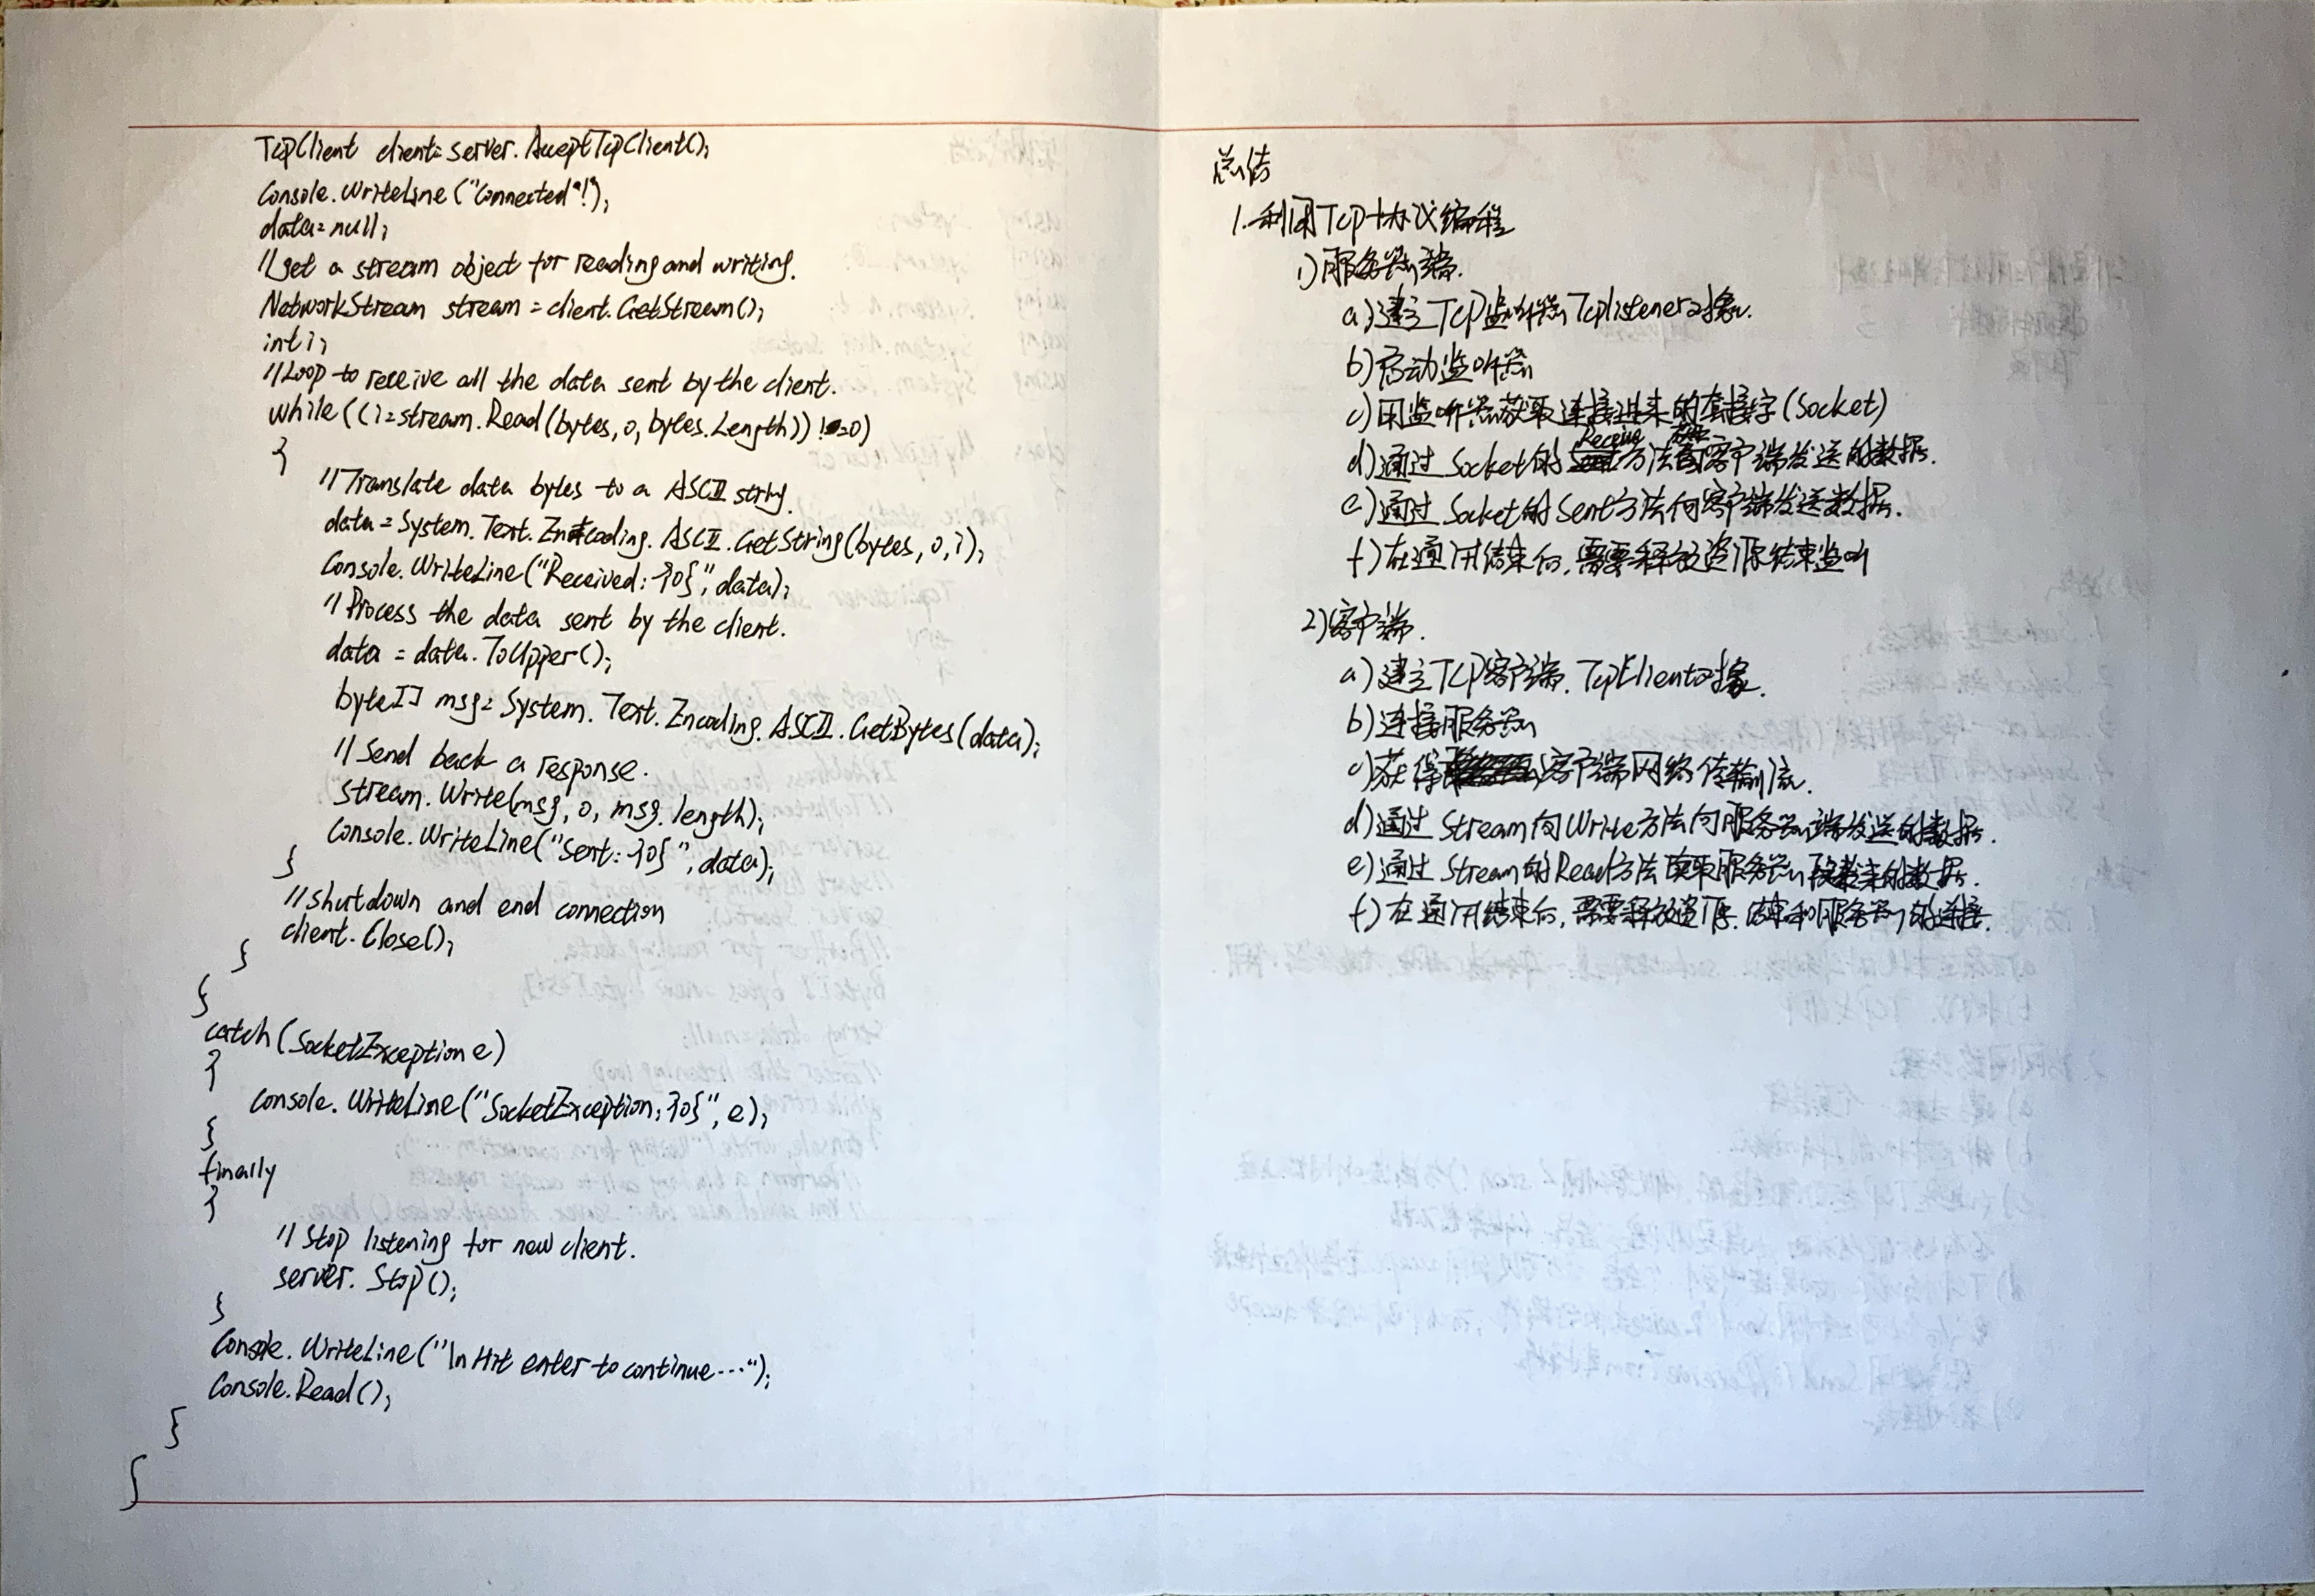 TcpClient client=server.AcceptTcpClient();
Console.WriteLine("Connected"!);
data=null;
//get a stream object for reading and writing.
NetworkStream stream = client.GetStream();
int i;
//Loop to receive all the data sent by the client.
while((i=stream.Read(bytes,0,bytes.Length))!=0)
{
//Translate data bytes to a ASCII string.
data=System.Text.Encoding.ASCII.GetString(bytes,0,i);
Console.WriteLine("Received:{0}",data);
//Process the data sent by the client.
data = data.ToUpper();
byte[] msg=System.Text.Encoding.ASCII.GetBytes(data);
//Send back a response.
stream.Write(msg,0,msg.length);
Console.WriteLine("Sent:{0}",data);
}
//shutdown and end connection
client.Close();
}
}
catch(SocketException e)
{
Console.WriteLine("SocketException:{0}",e);
}
finally
{
//Stop listening for new client.
server.Stop();
}
Console.WriteLine("\n Hit enter to continue...");
Console.Read();
}
}
总结
1.利用Tcp协议编程
1)服务器端.
a)建立Tcp监听器Tcplistener对象.
b)启动监听器
c)用监听器获取连接进来的套接字(Socket)
d)通过Socket的Receive方法获取客户端发送的数据.
e)通过Socket的Sent方法向客户端发送数据.
f)在通讯结束后,需要释放资源结束监听
2)客户端.
a)建立Tcp客户端.TcpClient对象.
b)连接服务器
c)获得客户端网络传输流.
d)通过Stream向Write方法向服务器端发送的数据.
e)通过Stream的Read方法读取服务器发来的数据.
f)在通讯结束后,需要释放资源.结束和服务器的连接.